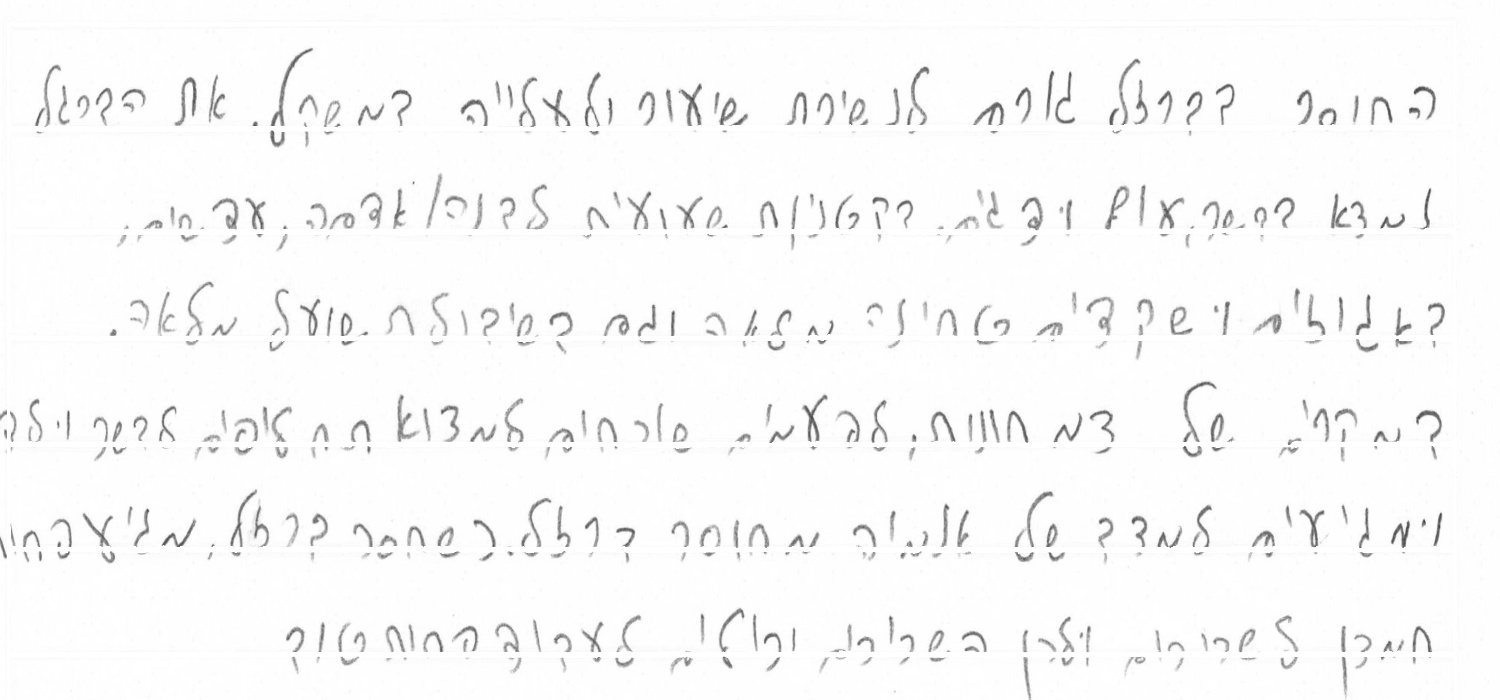 החוסר בברזל גורם לנשירת שיער ולעלייה במשקל. את הברזל
נמצא בבשר, עוף ודגים. בקטניות שעועית לבנה/אדמה, עדשים,
באגוזים ושקדים טחינה מלאה וגם בשיבולת שועל מלאה.
במקרים של צמחונות, לפעמים שוכחים למצוא תחליפים לבשר
ומגיעים למצב של אנמיה מחוסר ברזל. כשחסר ברזל, מגיע פחות
חמצן לשרירים ולכן השרירים יכולים לעבוד פחות טוב